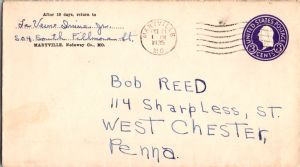 After 10 days, return to
La Vaine Jr.
504 South Fillmore St
MARYVILLE, Nodaway Co., MO.
MARYVILLE
1 PM
1935
MO.
UNITED STATES POSTAGE
CENTS
BOB REED
114 SHARPLESS, ST.
WEST CHESTER,
Penna.